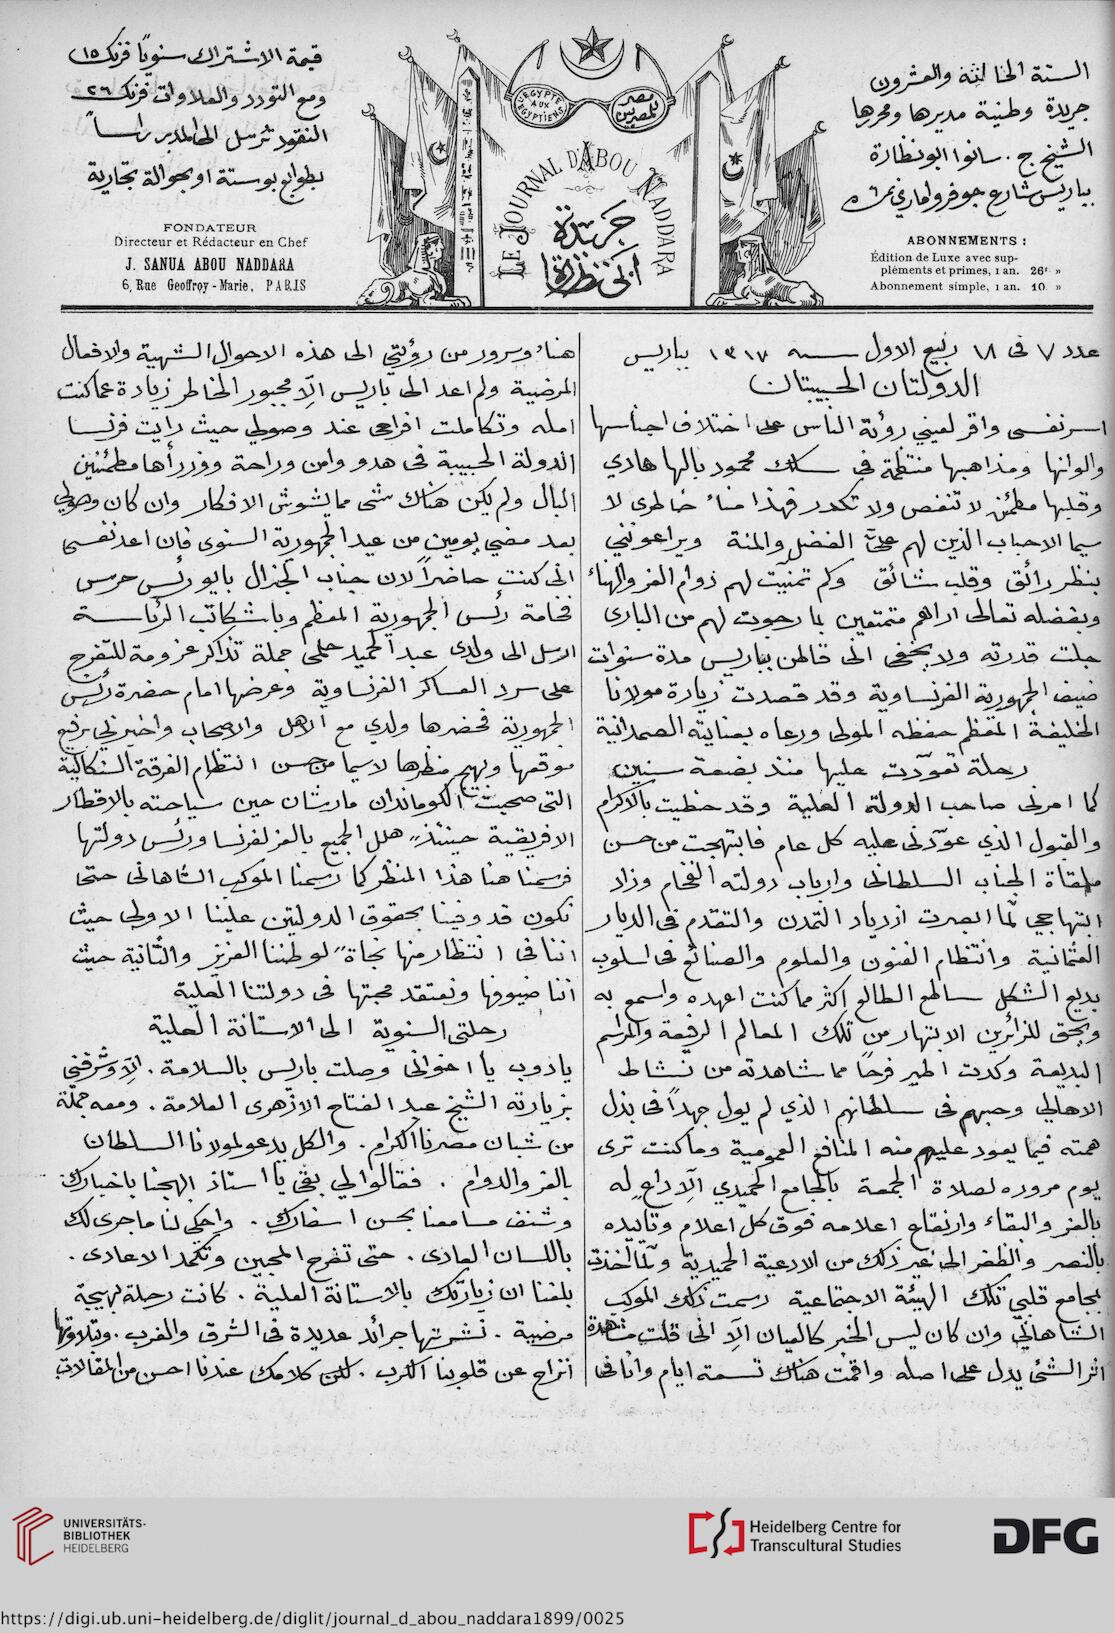 السنة الخالثة والعشرون
جريدة وطنية مديرها ومحررها
الشيخ ج. سانوا ابو نظارة
بباريس شارع جوفروا ماري نمرة ٦
ABONNEMENTS :
Édition de Luxe avec sup-
pléments et primes, 1 an. 26f »
Abonnement simple, 1 an. 10 »
L'ÉGYPTE
AUX
ÉGYPTIENS
مصر
للمصريين
LE JOURNAL D'ABOU NADDARA
جريدة
ابي نظارة
قيمة الاشتراك سنويًا فرنك ١٥
ومع التودد والعلاوات فرنك ٢٦
النقود ترسل الى المدير راساً
بطوابع بوستة او بحوالة تجارية
FONDATEUR
Directeur et Rédacteur en Chef
J. SANUA ABOU NADDARA
6, Rue Geoffroy-Marie, PARIS
عدد ٧ فى ١٨ ربيع الاول سنه ١٣١٧ بباريس
الدولتان الحبيبتان
اسر نفسى واقر لعيني رؤية الناس على اختلاف اجناسها
والوانها ومذاهبها منتظمة في سلك محمود بالها هادي
وقلبها مطمئن لا تنغص ولا تكدر فهذا مناء خاطرى لا
سيما الاحباب الذين لهم علىَّ الفضل والمنة ويراعونني
بنظر رائق وقلب شائق وكم تمنيت لهم دوام العز والهناء
وبفضله تعالى اراهم متمتعين بما رجوت لهم من البارى
جلت قدرته ولا يخفى انى قاطن بباريس مدة سنوات
ضيف الجمهورية الفرنساوية وقد قصدت زيارة مولانا
الخليفة المعظم حفظه المولى ورعاه بعنايته الصمدانية
رحلة تعوّدت عليها منذ بضعة سنين
كما امرنى صاحب الدولة العلية وقد حظيت بالاكرام
والقبول الذي عوّدنى عليه كل عام فابتهجت من حسن
ملقاة الجناب السلطانى وارباب دولته الفخام وزاد
ابتهاجي لمّا ابصرت ازدياد التمدن والتقدم فى الديار
العثمانية وانتظام الفنون والعلوم والصنائع فى اسلوب
بديع الشكل ساطع الطالع اكثر مما كنت اعهده واسمع به
ويحق للزائرين الابتهار من تلك المعالم الرفيعة والمراسم
البديعة وكدت اطير فرحًا مما شاهدته من نشاط
الاهالي وحبهم فى سلطانهم الذي لم يول جهداً فى بذل
همته فيما يعود عليهم منه المنافع العمومية وما كنت ترى
يوم مروره لصلاة الجمعة بالجامع الحميدي الّا داعٍ له
بالعز والبقاء وارتفاع اعلامه فوق كل اعلام وتأييده
بالنصر والظفر الى غير ذلك من الادعية الحميدية ولمّا اخذت
بمجامع قلبي تلك الهيئة الاجتماعية رسمت ذلك الموكب
الشاهاني وان كان ليس الخبر كالعيان الّا انى قلت مشاهدة
اثر الشئ يدل على اصله واقمت هناك تسعة ايام وانا فى
هناء وسرور من رؤيتي الى هذه الاحوال الشهية والافعال
المرضية ولم اعد الى باريس الّا مجبور الخاطر زيادة عما كنت
امله وتكاملت افراحى عند وصولي حيث رايت فرنسا
الدولة الحبيبة فى هدو وامن وراحة ووزرأها مطمئنين
البال ولم يكن هناك شئ مما يشوش الافكار وان كان وصولي
بعد مضي يومين من عيد الجمهورية السنوى فان اعد نفسى
انى كنت حاضراً لان جناب الجنرال بايو رئيس حرس
فخامة رئيس الجمهورية المعظم وباشكاتب الرئاسة
ارسل الى ولدى عبد الحميد حلمى جملة تذاكر عزومة للتفرج
على سرد العساكر الفرنساوية وعرضها امام حضرة رئيس
الجمهورية فحضرها ولدي مع الاهل والاصحاب واخبرني برفيع
موقعها وبهيج منظرها لاسيما من حسن انتظام الفرقة السنكالية
التى صحبت الكوماندان مارشان حين سياحته بالاقطار
الافريقية حينئذٍ هلل الجميع بالعز لفرنسا ورئيس دولتها
فرسمنا هنا هذا المنظر كما رسمنا الموكب الشاهانى حتى
نكون قد وفينا بحقوق الدولتين علينا الاولى حيث
اننا فى انتظار منها نجاة لوطننا العزيز والثانية حيث
اننا ضيوفها ونعتقد محبتها فى دولتنا العلية
رحلتى السنوية الى الاستانة العلية
يادوب يا اخوانى وصلت باريس بالسلامة. الّا وشرفنى
بزيارته الشيخ عبد الفتاح الازهرى العلامة. ومعه جملة
من شبان مصرنا الكرام. والكل يدعو لمولانا السلطان
بالعز والدوام. فقالوا لي بقى يا استاذ ابهجنا باخبارك
وشنف مسامعنا بحسن اسفارك. واحكي لنا ما جرى لك
باللسان البادى. حتى تفرح المحبين وتكمد الاعادى.
بلغنا ان زيارتك بالاستانة العلية. كانت رحلة بهيجة
مرضية. نشرتها جرائد عديدة فى الشرق والغرب. وبتلاوتها
انزاح عن قلوبنا الكرب. لكن كلامك عندنا احسن من المقالات
UNIVERSITÄTS-
BIBLIOTHEK
HEIDELBERG
Heidelberg Centre for
Transcultural Studies
DFG
https://digi.ub.uni-heidelberg.de/diglit/journal_d_abou_naddara1899/0025